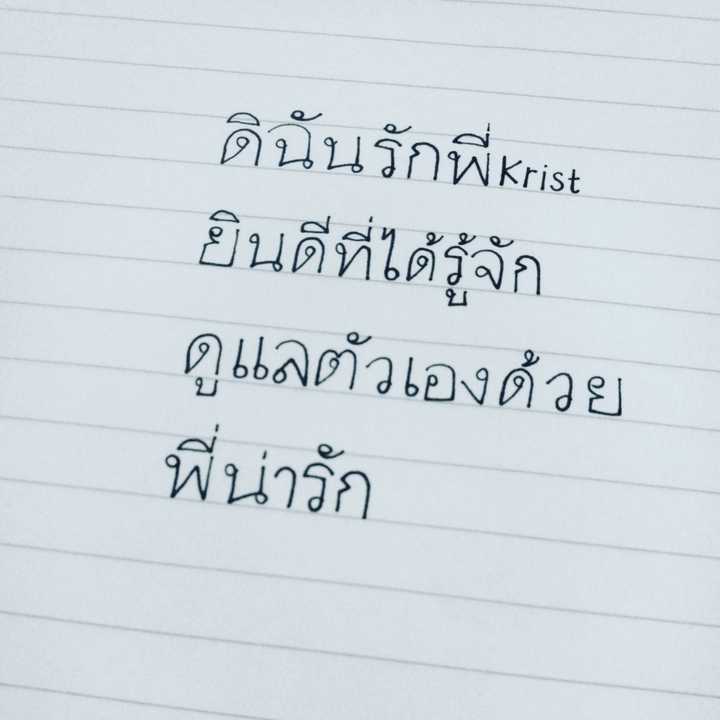 ดิฉันรักพี่Krist
ยินดีที่ได้รู้จัก
ดูแลตัวเองด้วย
พี่น่ารัก